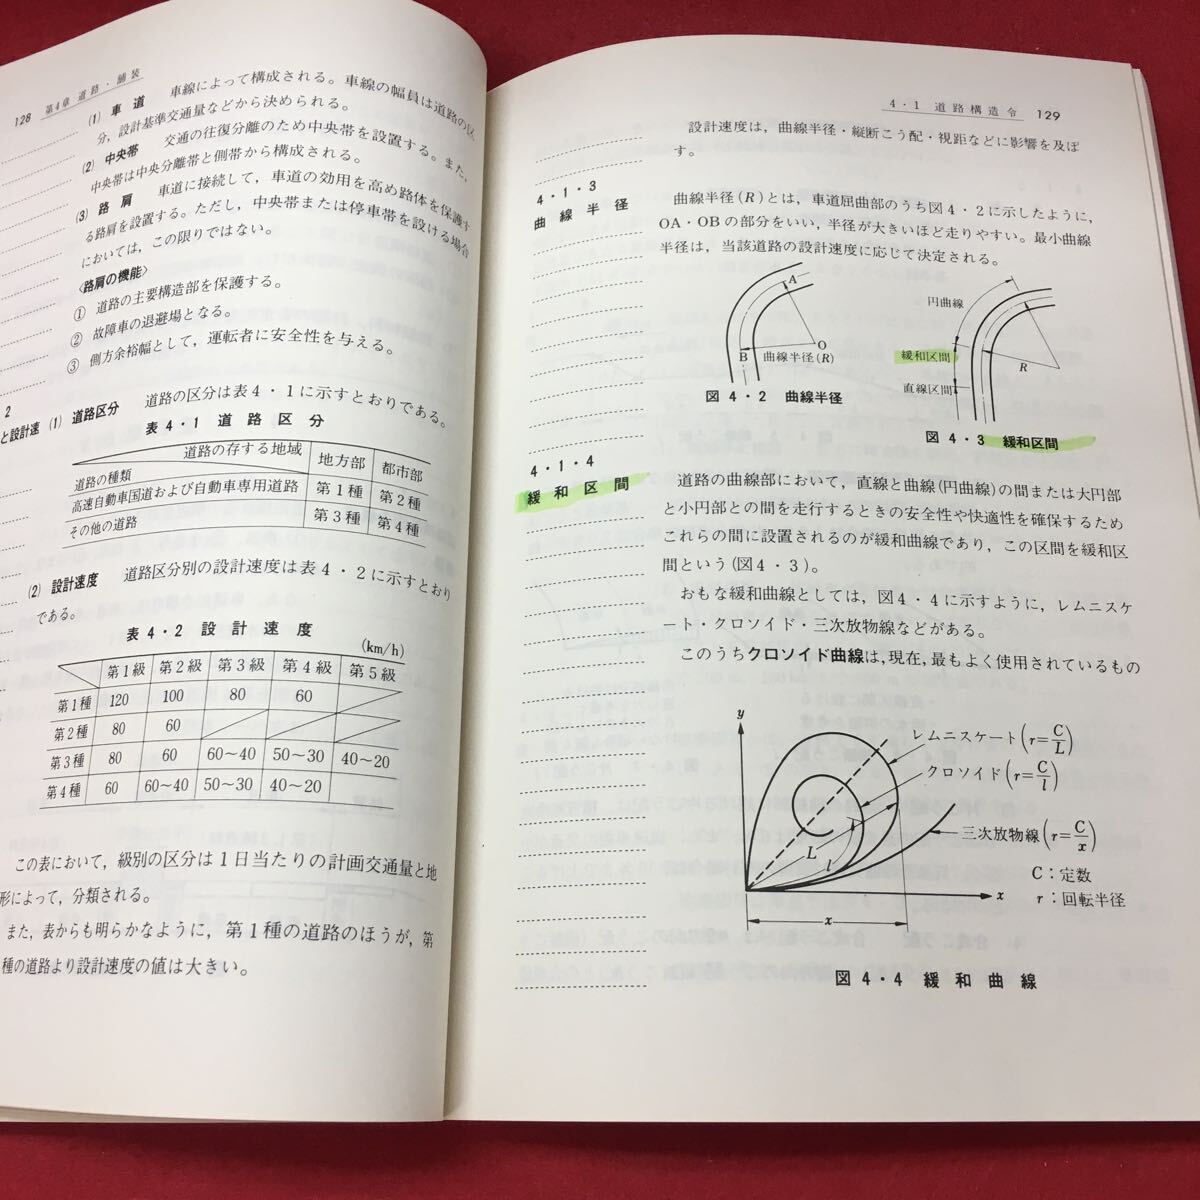 128 第4章 道路・舗装
(1) 車道 車線によって構成される。車線の幅員は道路の区
分，設計基準交通量などから決められる。
(2) 中央帯 交通の往復分離のため中央帯を設置する。また，
中央帯は中央分離帯と側帯から構成される。
(3) 路肩 車道に接続して，車道の効用を高め路体を保護す
る路肩を設置する。ただし，中央帯または停車帯を設ける場合
においては，この限りではない。
〈路肩の機能〉
① 道路の主要構造部を保護する。
② 故障車の退避場となる。
③ 側方余裕幅として，運転者に安全性を与える。
2
と設計速
(1) 道路区分 道路の区分は表4・1に示すとおりである。
表4・1 道路区分
道路の存する地域 地方部 都市部
道路の種類
高速自動車国道および自動車専用道路 第1種 第2種
その他の道路 第3種 第4種
(2) 設計速度 道路区分別の設計速度は表4・2に示すとおり
である。
表4・2 設計速度 (km/h)
第1級 第2級 第3級 第4級 第5級
第1種 120 100 80 60
第2種 80 60
第3種 80 60 60～40 50～30 40～20
第4種 60 60～40 50～30 40～20
この表において，級別の区分は1日当たりの計画交通量と地
形によって，分類される。
また，表からも明らかなように，第1種の道路のほうが，第
種の道路より設計速度の値は大きい。
4・1 道路構造令 129
設計速度は，曲線半径・縦断こう配・視距などに影響を及ぼ
す。
4・1・3
曲線半径
曲線半径(R)とは，車道屈曲部のうち図4・2に示したように，
OA・OBの部分をいい，半径が大きいほど走りやすい。最小曲線
半径は，当該道路の設計速度に応じて決定される。
A
O
B
曲線半径(R)
図4・2 曲線半径
円曲線
緩和区間
直線区間
R
図4・3 緩和区間
4・1・4
緩和区間
道路の曲線部において，直線と曲線(円曲線)の間または大円部
と小円部との間を走行するときの安全性や快適性を確保するため
これらの間に設置されるのが緩和曲線であり，この区間を緩和区
間という(図4・3)。
おもな緩和曲線としては，図4・4に示すように，レムニスケ
ート・クロソイド・三次放物線などがある。
このうちクロソイド曲線は，現在，最もよく使用されているもの
y
レムニスケート(r=C/L)
クロソイド(r=C/l)
三次放物線(r=C/x)
C：定数
r：回転半径
L
l
x
x
図4・4 緩和曲線